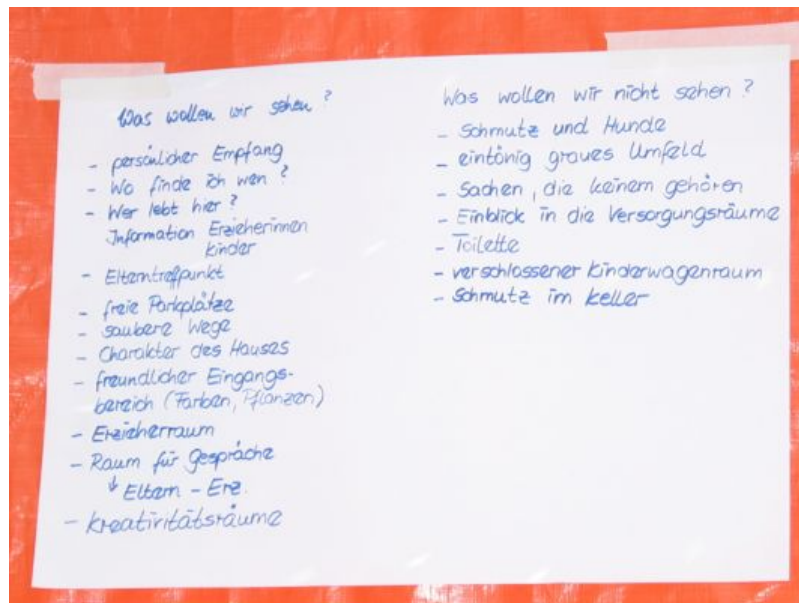 Was wollen wir sehen?
- persönlicher Empfang
- Wo finde ich wen?
- Wer lebt hier?
Information Erzieherinnen
Kinder
- Elterntreffpunkt
- freie Parkplätze
- saubere Wege
- Charakter des Hauses
- freundlicher Eingangs-
bereich (Farben, Pflanzen)
- Erzieherraum
- Raum für Gespräche
↓ Eltern - Erz.
- Kreativitätsräume
Was wollen wir nicht sehen?
- Schmutz und Hunde
- eintönig graues Umfeld
- Sachen, die keinem gehören
- Einblick in die Versorgungsräume
- Toilette
- verschlossener Kinderwagenraum
- Schmutz im Keller